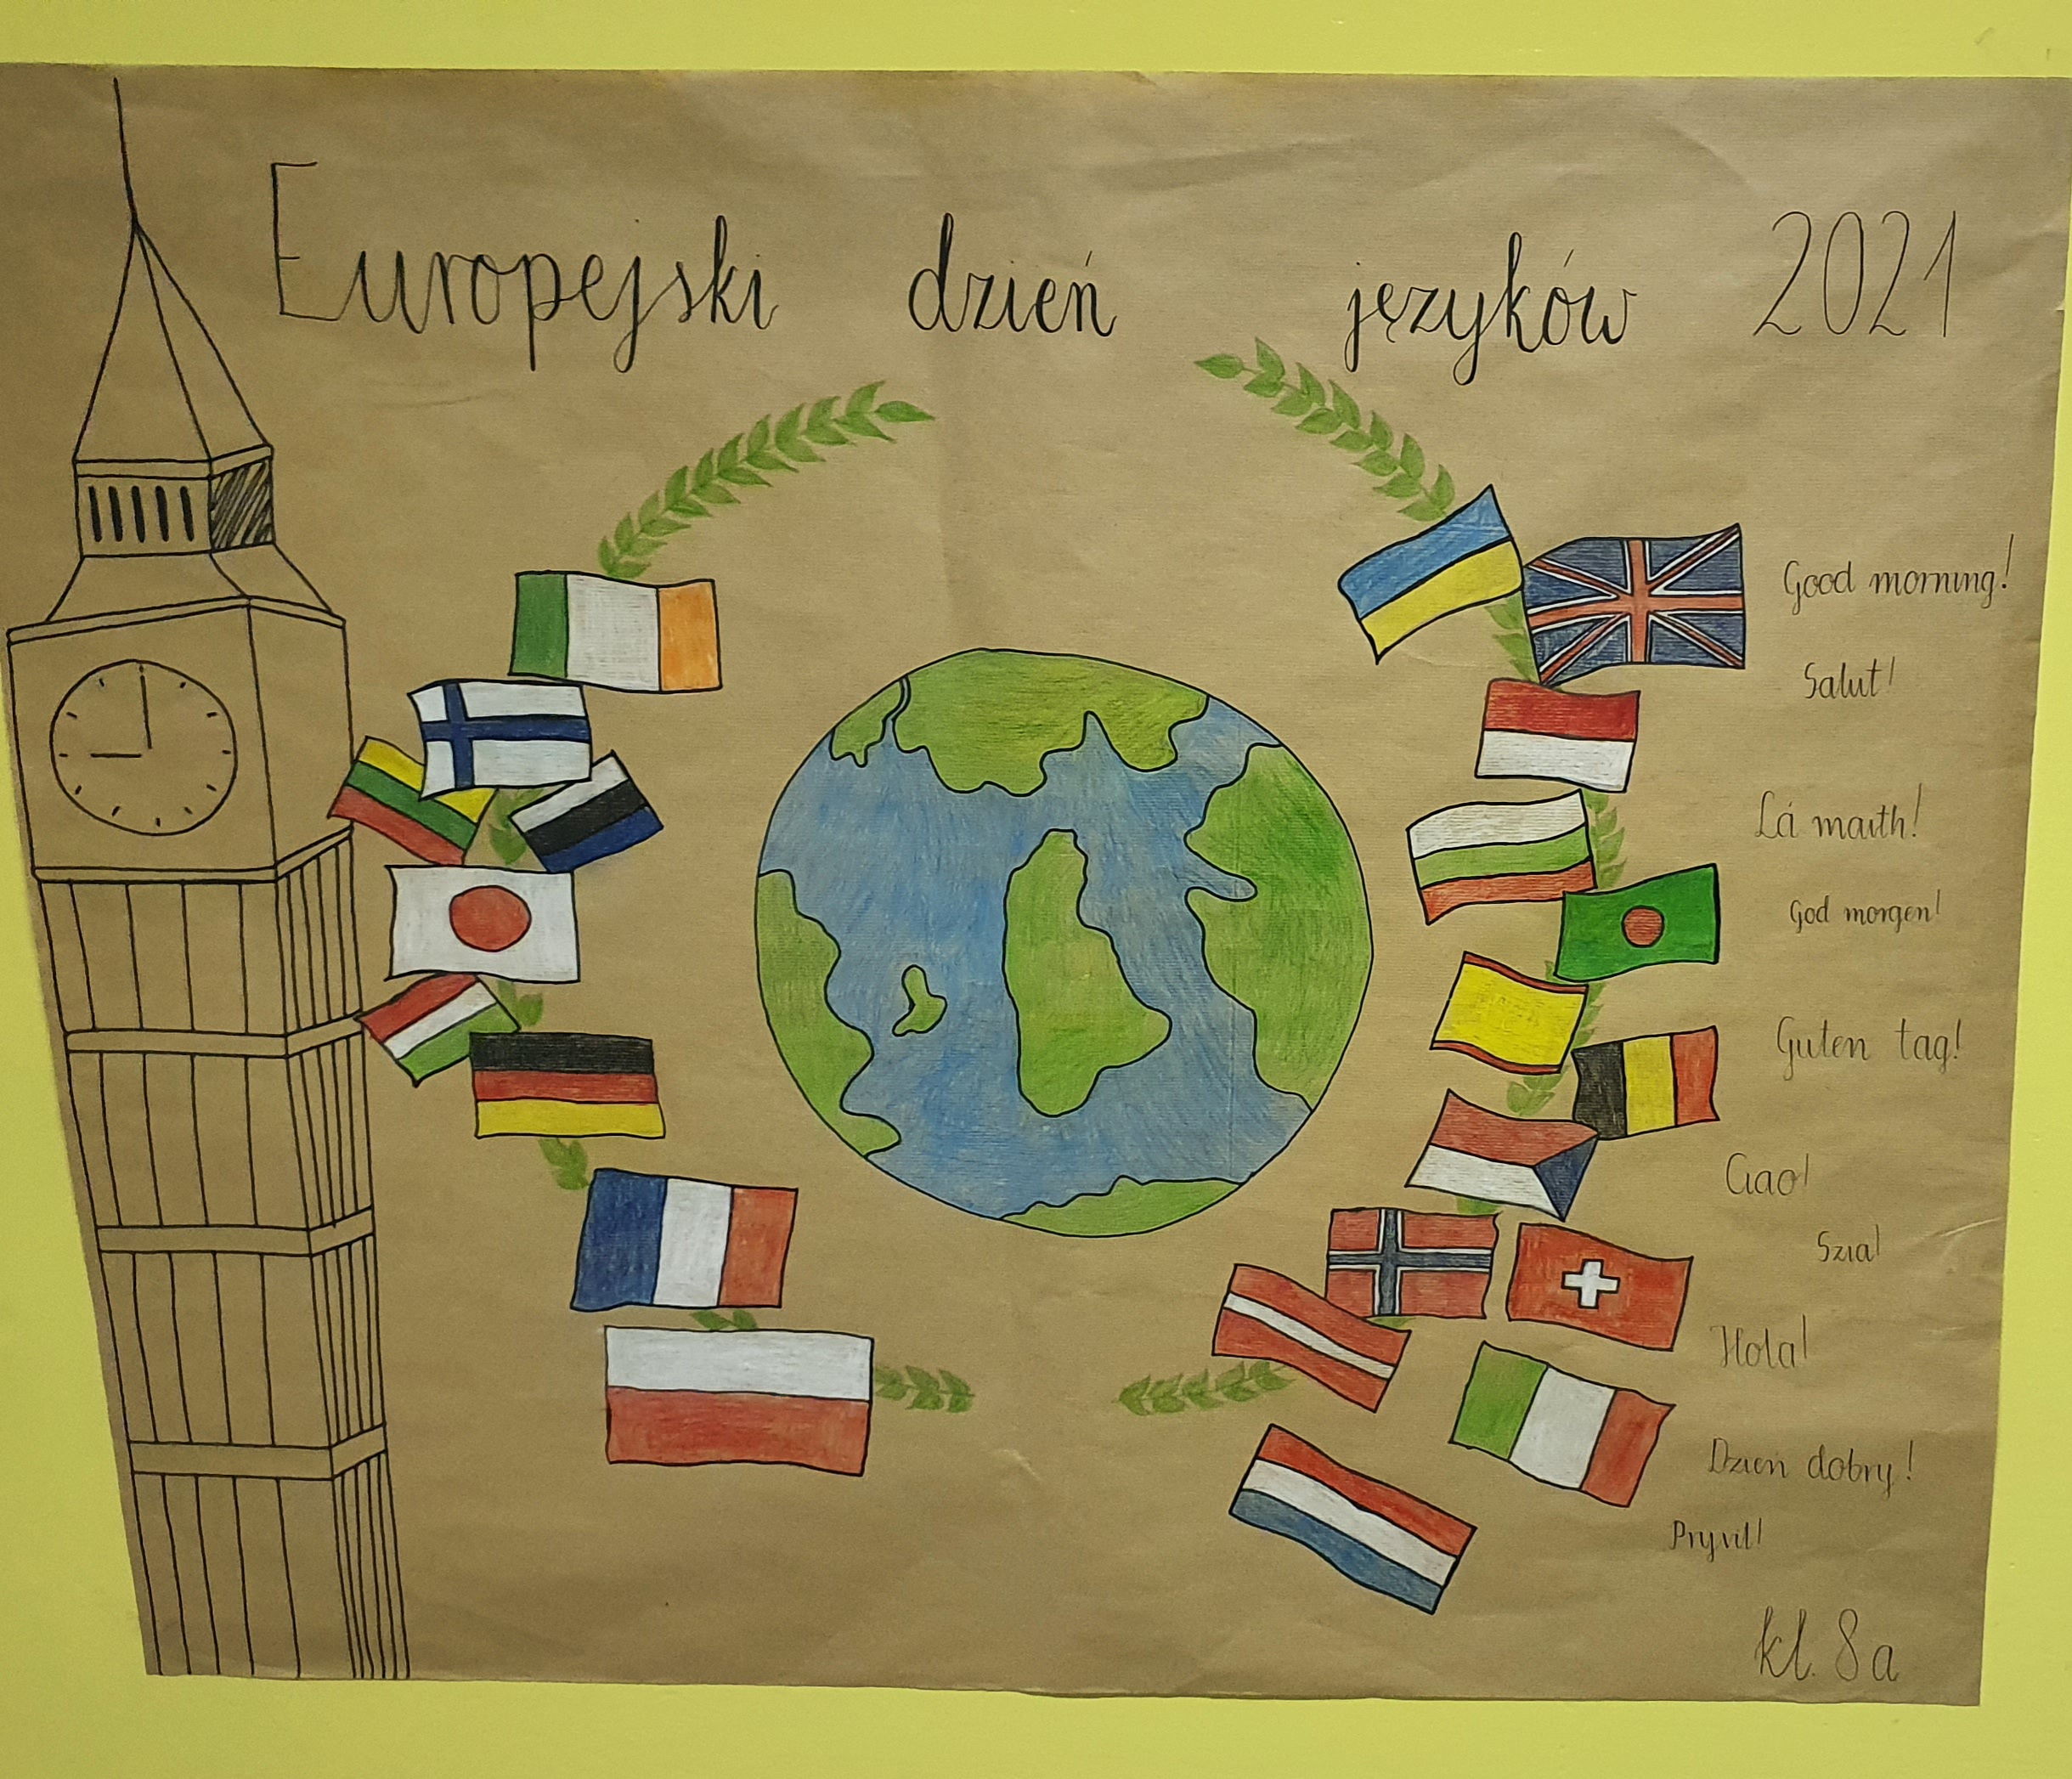 Europejski dzień języków 2021
Good morning!
Salut!
Lá maith!
God morgen!
Guten tag!
Ciao!
Szia!
Hola!
Dzień dobry!
Pryvit!
kl. 8a